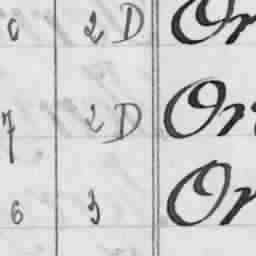 0 2 D Or
7 2 D Or
6 3 Or